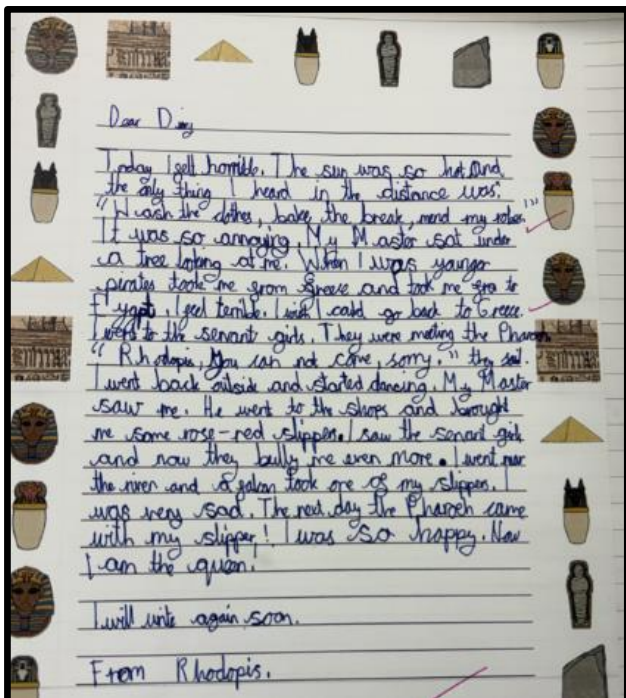 Dear Diary
Today I felt horrible. The sun was so hot and
the only thing I heard in the distance was:
"Wash the clothes, bake the break, mend my robes."
It was so annoying. My Master sat under
a tree looking at me. When I was younger
pirates took me from Greese and took me to
Eygpt. I feel terrible. I wish I could go back to Greece.
I went to the servant girls. They were meeting the Pharoah
"Rhodopis, you can not come, sorry." they said.
I went back outside and started dancing. My Master
saw me. He went to the shops and brought
me some rose-red slippers. I saw the servant girls
and now they bully me even more. I went near
the river and a falcon took one of my slippers. I
was very sad. The next day the Pharoeh came
with my slipper! I was so happy. Now
I am the queen.
I will write again soon.
From Rhodopis.